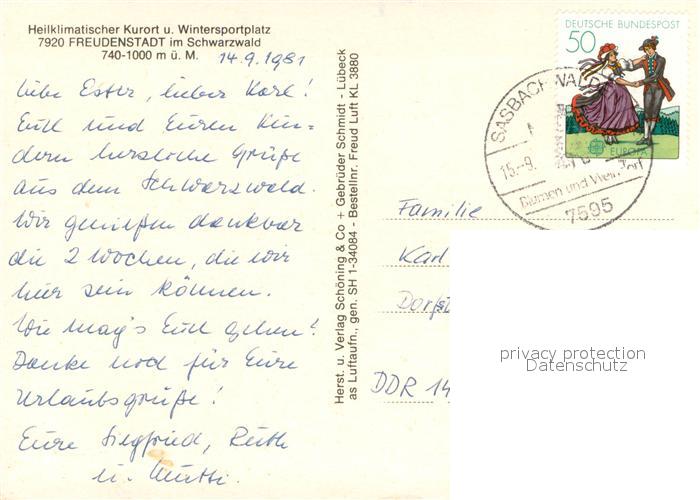 Heilklimatischer Kurort u. Wintersportplatz
7920 FREUDENSTADT im Schwarzwald
740-1000 m ü. M.
14.9.1981
Liebe Ester, lieber Karl!
Euch und Euren Kin=
dern herzliche Grüße
aus dem Schwarzwald.
Wir genießen dankbar
die 2 Wochen, die wir
hier sein können.
Wie mag's Euch gehen?
Danke noch für Eure
Urlaubsgrüße!
Eure Siegfried, Ruth
u. Mutti.
Herst. u. Verlag Schöning & Co + Gebrüder Schmidt - Lübeck
as Luftaufn., gen. SH 1-34084 - Bestellnr. Freud Luft KL 3880
DEUTSCHE BUNDESPOST
50
EUROPA
SASBACHWALDEN
15.-9.
Blumen und Weindorf
7595
Familie
Karl
Dorfst
DDR 14
privacy protection
Datenschutz